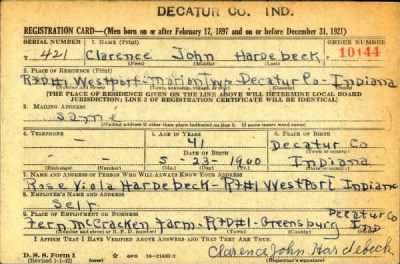 DECATUR CO. IND.
REGISTRATION CARD—(Men born on or after February 17, 1897 and on or before December 31, 1921)
SERIAL NUMBER 1. NAME (Print) ORDER NUMBER
T 421 Clarence John Hardebeck 10144
(First) (Middle) (Last)
2. PLACE OF RESIDENCE (Print)
R#1 Westport-Marion Twp-Decatur Co-Indiana
[THE PLACE OF RESIDENCE GIVEN ON THE LINE ABOVE WILL DETERMINE LOCAL BOARD
JURISDICTION; LINE 2 OF REGISTRATION CERTIFICATE WILL BE IDENTICAL.]
3. MAILING ADDRESS
same
[Mailing address if other than place indicated on line 2. If same insert word same]
4. TELEPHONE 5. AGE IN YEARS 6. PLACE OF BIRTH
— 41 Decatur Co
DATE OF BIRTH (Town or county)
— 5-23-1900 Indiana
(Exchange) (Number) (Mo.) (Day) (Yr.) (State or country)
7. NAME AND ADDRESS OF PERSON WHO WILL ALWAYS KNOW YOUR ADDRESS
Rose Viola Hardebeck-R#1 Westport Indiana
8. EMPLOYER'S NAME AND ADDRESS
Self
9. PLACE OF EMPLOYMENT OR BUSINESS Decatur Co
Fern McCracken Farm-R#1-Greensburg Ind
I AFFIRM THAT I HAVE VERIFIED ABOVE ANSWERS AND THAT THEY ARE TRUE.
D. S. S. Form 1
(Revised 1-1-42) GPO 16-21630-2 Clarence John Hardebeck